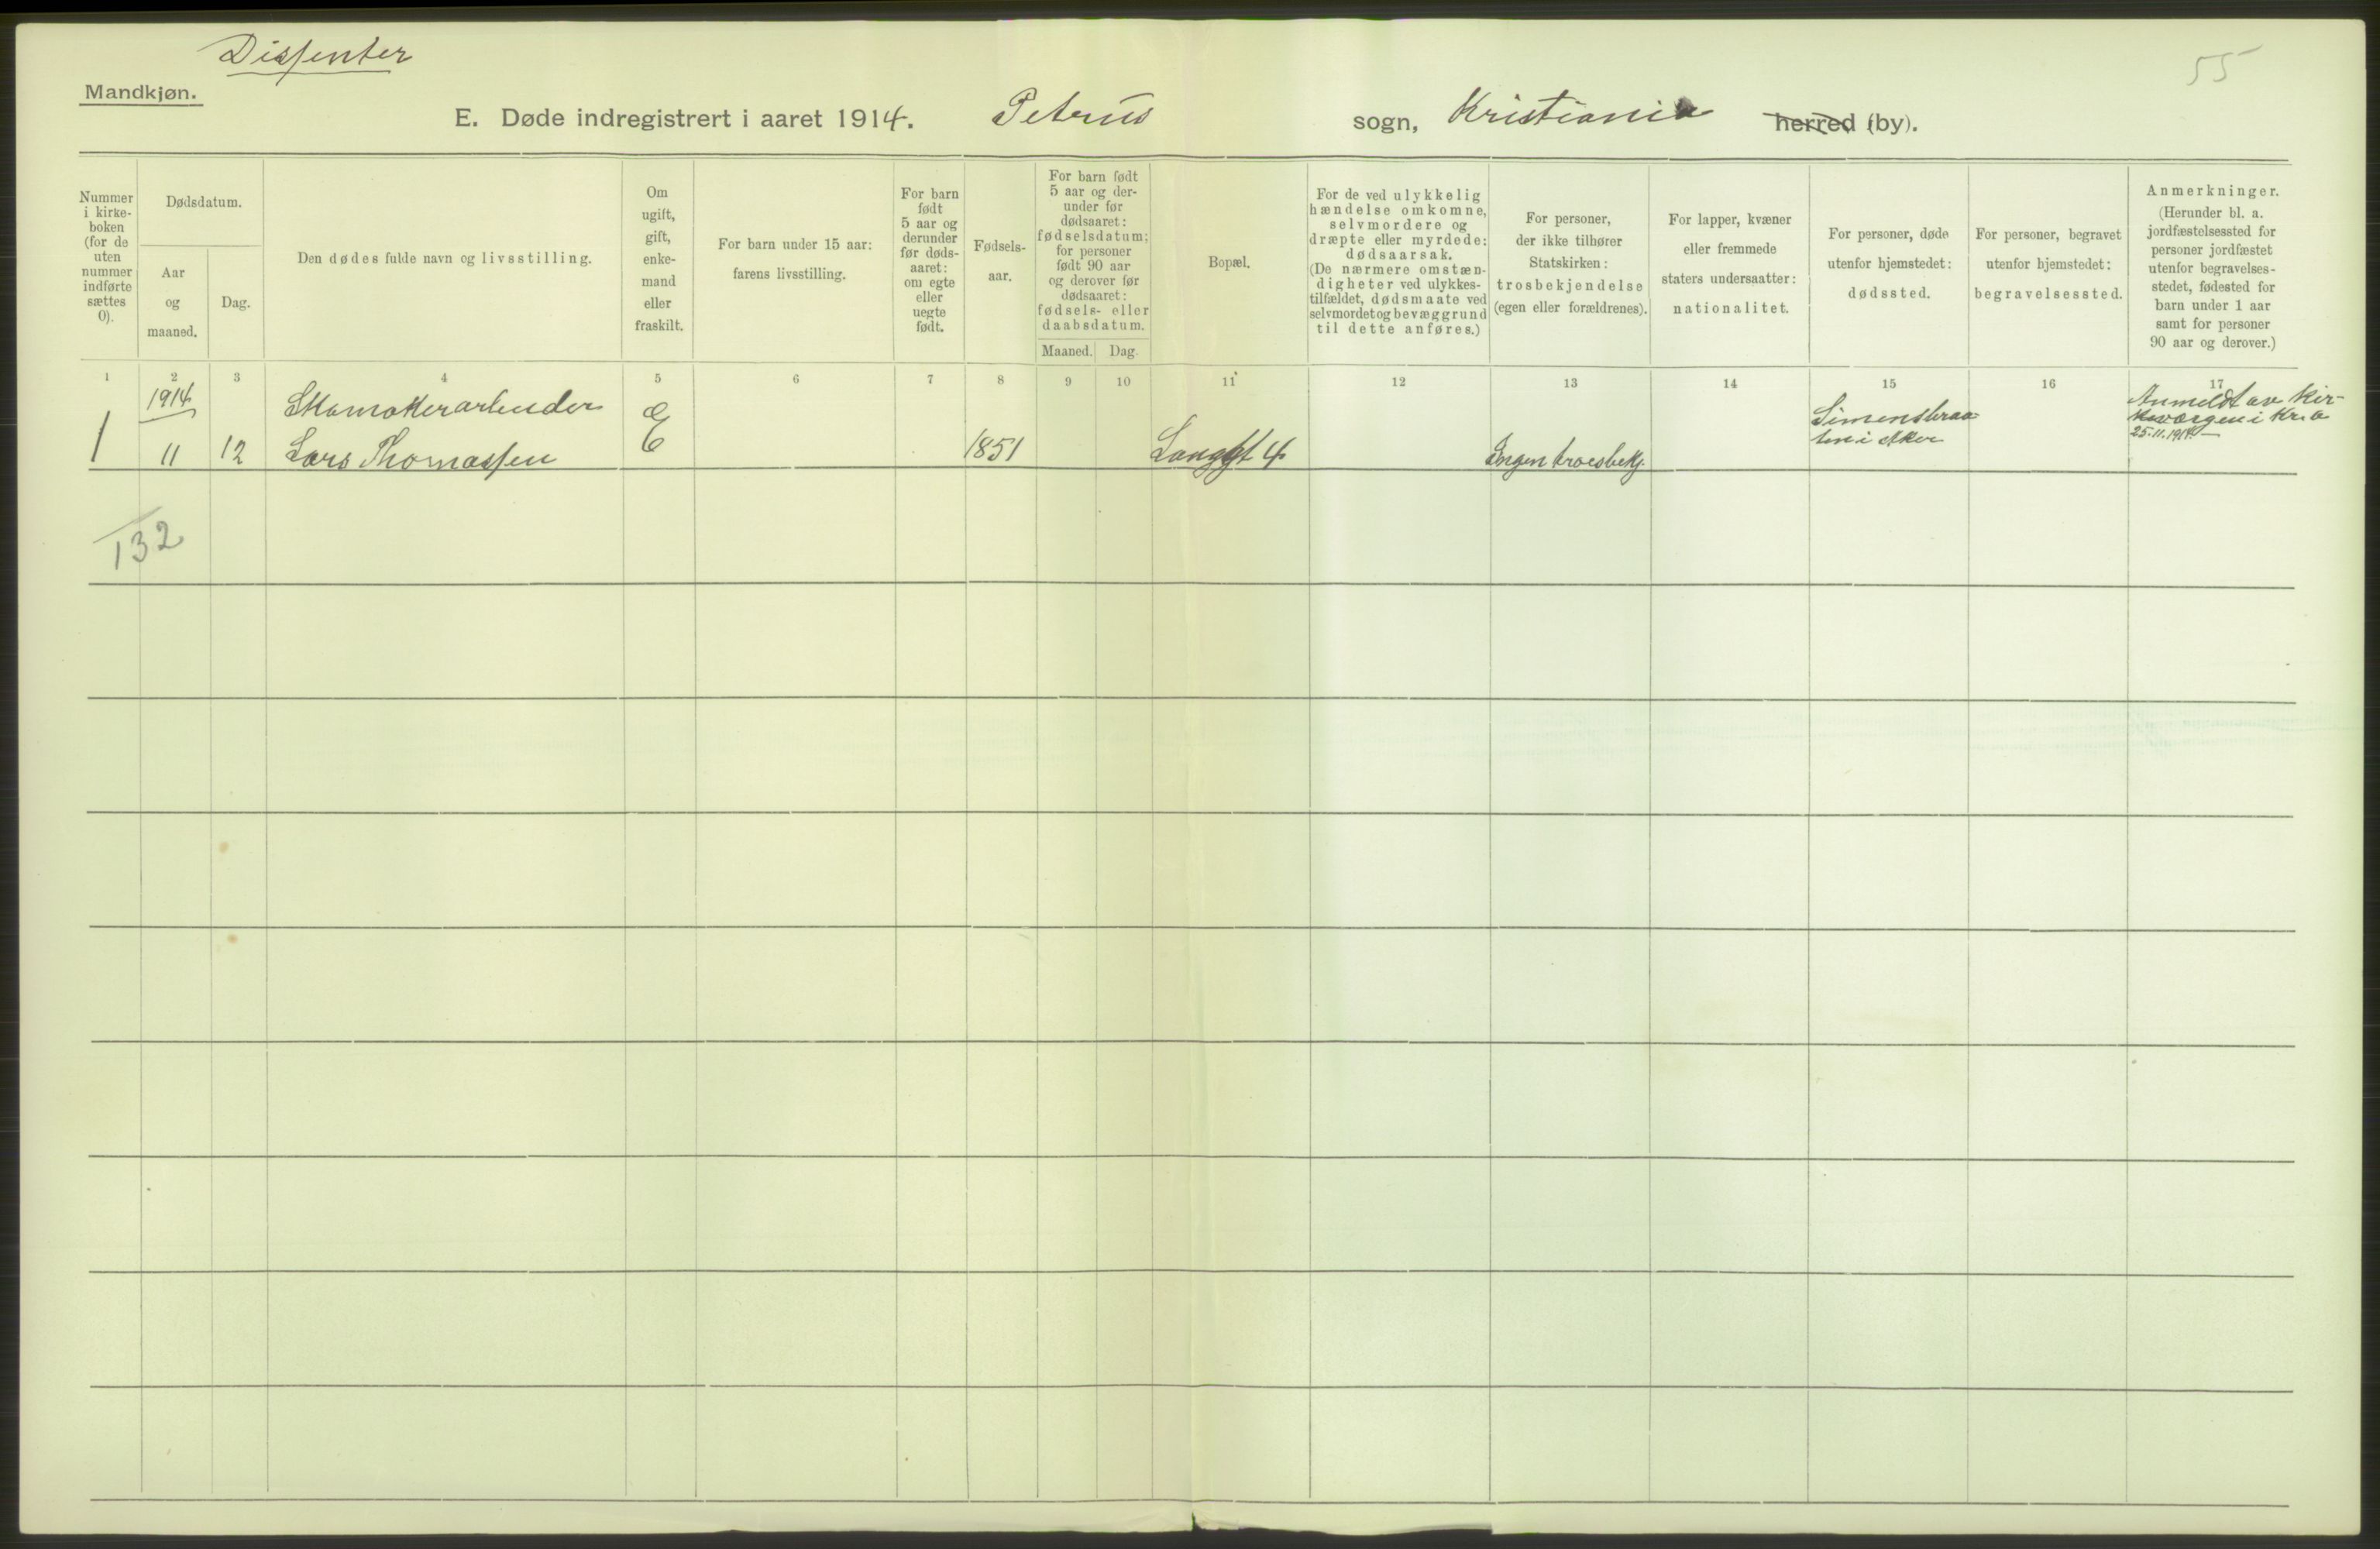 Dissenter
55
Mandkjøn.
E. Døde indregistrert i aaret 1914. Petrus sogn, Kristiania herred (by).
Nummer
i kirke-
boken
(for de
uten
nummer
indførte
sættes
0).
Dødsdatum.
Aar
og
maaned.
Dag.
Den dødes fulde navn og livsstilling.
Om
ugift,
gift,
enke-
mand
eller
fraskilt.
For barn under 15 aar:
farens livsstilling.
For barn
født
5 aar og
derunder
før døds-
aaret:
om egte
eller
uegte
født.
Fødsels-
aar.
For barn født
5 aar og der-
under før
dødsaaret:
fødselsdatum;
for personer
født 90 aar
og derover før
dødsaaret:
fødsels- eller
daabsdatum.
Maaned. Dag.
Bopæl.
For de ved ulykkelig
hændelse omkomne,
selvmordere og
dræpte eller myrdede:
dødsaarsak.
(De nærmere omstæn-
digheter ved ulykkes-
tilfældet, dødsmaate ved
selvmordet og bevæggrund
til dette anføres.)
For personer,
der ikke tilhører
Statskirken:
trosbekjendelse
(egen eller forældrenes).
For lapper, kvæner
eller fremmede
staters undersaatter:
nationalitet.
For personer, døde
utenfor hjemstedet:
dødssted.
For personer, begravet
utenfor hjemstedet:
begravelsessted.
Anmerkninger.
(Herunder bl. a.
jordfæstelsessted for
personer jordfæstet
utenfor begravelses-
stedet, fødested for
barn under 1 aar
samt for personer
90 aar og derover.)
1 2 3 4 5 6 7 8 9 10 11 12 13 14 15 16 17
1914 Skomakerarbeider Simensbraa- Anmeldt av kir-
keværgen i Kr.a
1 11 12 Lars Thomassen E 1851 Langgt 4 Ingen troesbekj. ten i Aker 25.11.1914
132